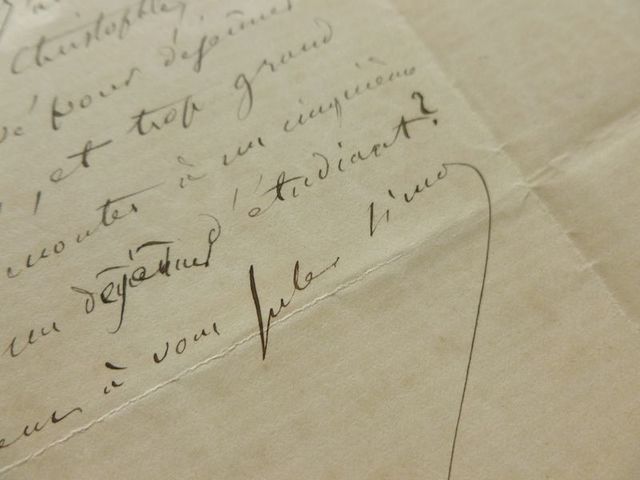 Christophle
pour déjeuner
, et trop grand
monter à un cinquième
un déjeuner d'étudiant?
à vous Jules Simon